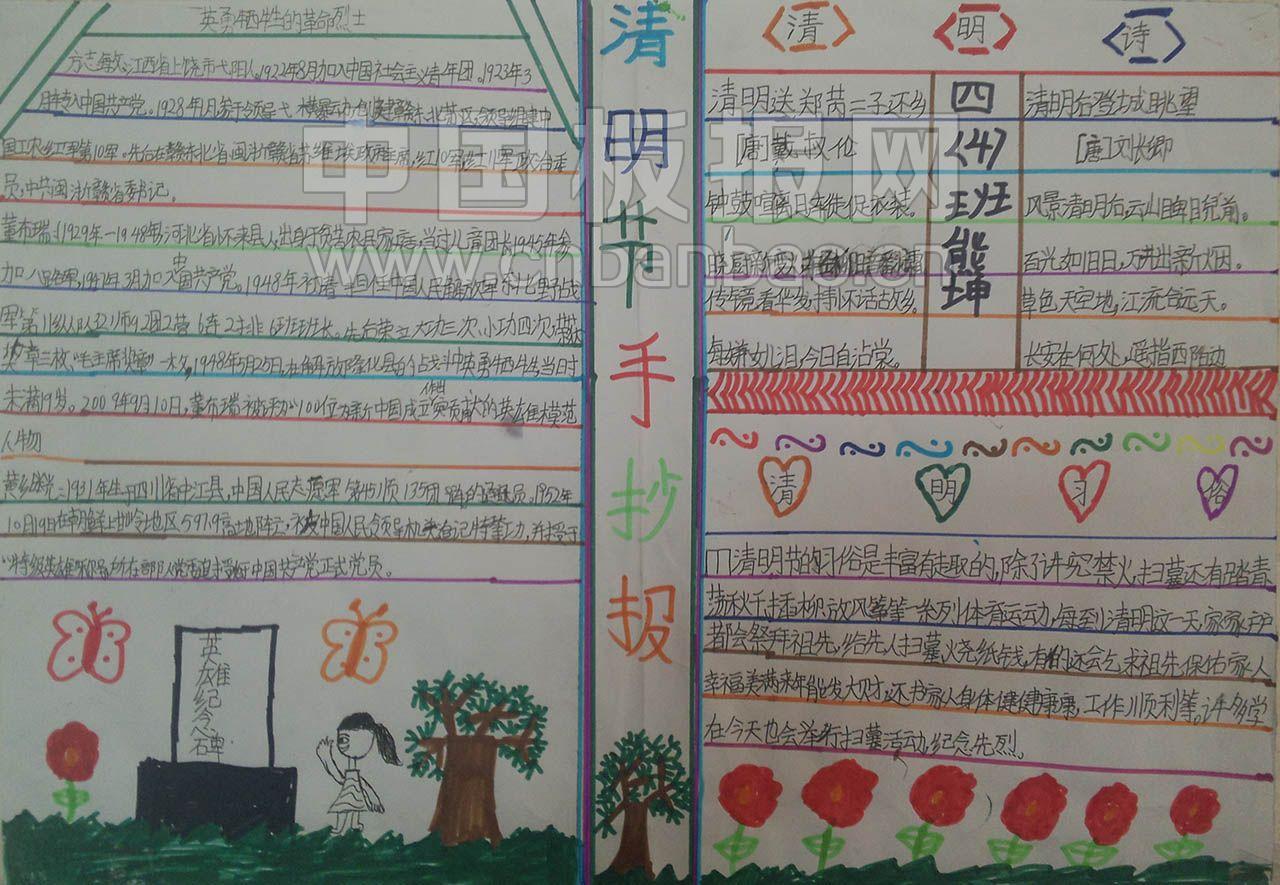 英勇牺牲的革命烈士
方志敏,江西省上饶市弋阳人,1922年8月加入中国社会主义青年团。1923年3
月转入中国共产党。1928年1月参于领导弋横暴动,创建赣东北苏区,领导组建中
国工农红军第10军。先后在赣东北省、闽浙赣省苏维埃政府主席,红10军、红11军政治委
员,中共闽浙赣省委书记。
董存瑞:(1929年—1948年)河北省怀来县人,出身于贫苦农民家庭,当过儿童团长,1945年参
加八路军,1947年3月加入中国共产党。1948年初春
担任中国人民解放军东北野战
军第11纵队32师92团2营6连2排6班班长。先后荣立大功三次、小功四次,荣获
奖章三枚、"毛主席奖章"一枚,1948年5月25日,在解放隆化县的战斗中英勇牺牲,当时
未满19岁。2009年9月10日,董存瑞被评为"100位为新中国成立作出突出贡献的英雄模范
人物
黄继光:1931年生于四川省中江县,中国人民志愿军第45师135团
的通讯员,1952年
10月19日在朝鲜上甘岭地区597.9高地
中国人民
领导机关追记特等功,并授于
"特级英雄"称号,所在部队党委追授
中国共产党正式党员。
英雄纪念碑
清明节手抄报
清明诗
清明送郑芮二子还乡
[唐]戴叔伦
钟鼓喧离日,车徒促
传镜看华发,持杯话故乡。
每嫌儿女泪,今日自沾裳。
四(4)班熊坤
清明后登城眺望
[唐]刘长卿
风景清明后,云山睥睨前。
百光如旧日,万井出新烟。
草色
天空地,江流合远天。
长安在何处,遥指夕阳边
清明习俗
清明节的习俗是丰富有趣的,除了讲究禁火,扫墓还有踏青
荡秋千,插柳,放风筝等一系列体育运动,每到清明这一天,家家户户
都会祭拜祖先,给先人扫墓,烧纸钱,有的还会乞求祖先保佑家人
幸福美满来年能发大财,还
家人身体健健康康,工作顺利等。许多学
在今天也会举行扫墓活动,纪念先烈。
中国板报网
www.cnbanbao.cn